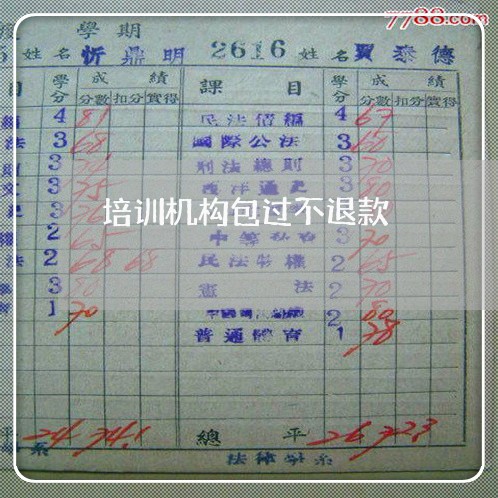 7788.com
學期
姓名 忻鼎明 2616 姓名 賈泰德
目 學分 成績 課目 學分 成績
分數 扣分 實得 分數 扣分 實得
4 81 民法債編 4 67
法 3 68 國際公法 3 60
3 刑法總則 3 70
3 75 西洋通史 3 80
培训机构包过不退款
2 65 3 70
法 2 68 68 民法物權 2 65
3 80 憲法 2 70
1 70 2 80
普通體育 1 78
平 24 74.1 總平 26 72.3
系 法律學系